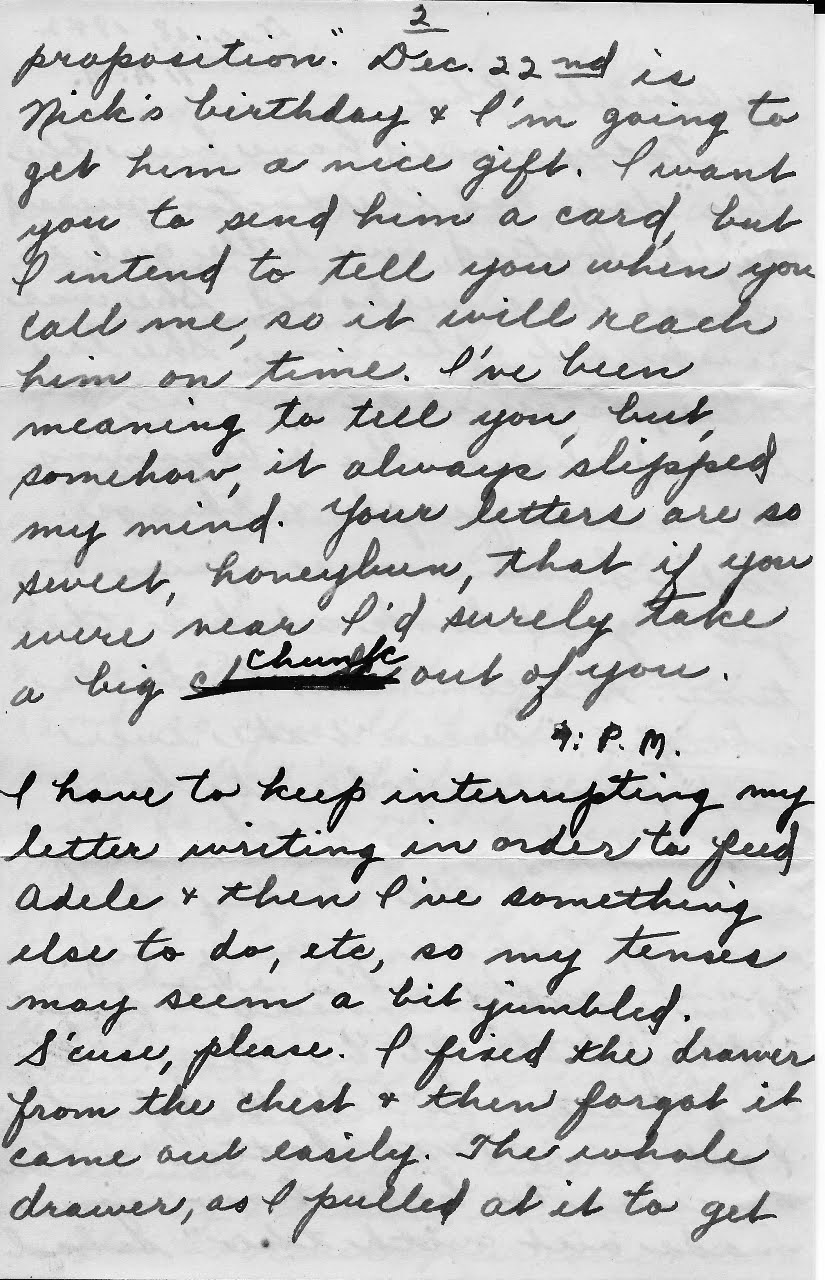 2
proposition." Dec. 22nd is
Nick's birthday & I'm going to
get him a nice gift. I want
you to send him a card, but
I intend to tell you when you
call me, so it will reach
him on time. I've been
meaning to tell you, but,
somehow, it always slipped
my mind. Your letters are so
sweet, honeybun, that if you
were near I'd surely take
a big chunk out of you.
9: P.M.
I have to keep interrupting my
letter writing in order to feed
Adele & then I've something
else to do, etc, so my tenses
may seem a bit jumbled.
S'cuse, please. I fixed the drawer
from the chest & then forgot it
came out easily. The whole
drawer, as I pulled at it to get